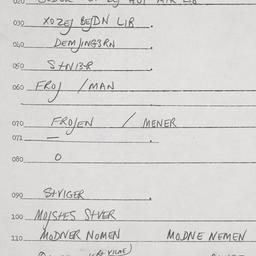 030 XOZEJ BEJDN LIR
040 DEMJING3RN
050 S+NIBR
060 FROJ /MAN
070 FROJEN / MENER
071 —
080 O
090 S+VIGER
100 MOJSTES S+VER
110 MODNER NOMEN MODNE NEMEN